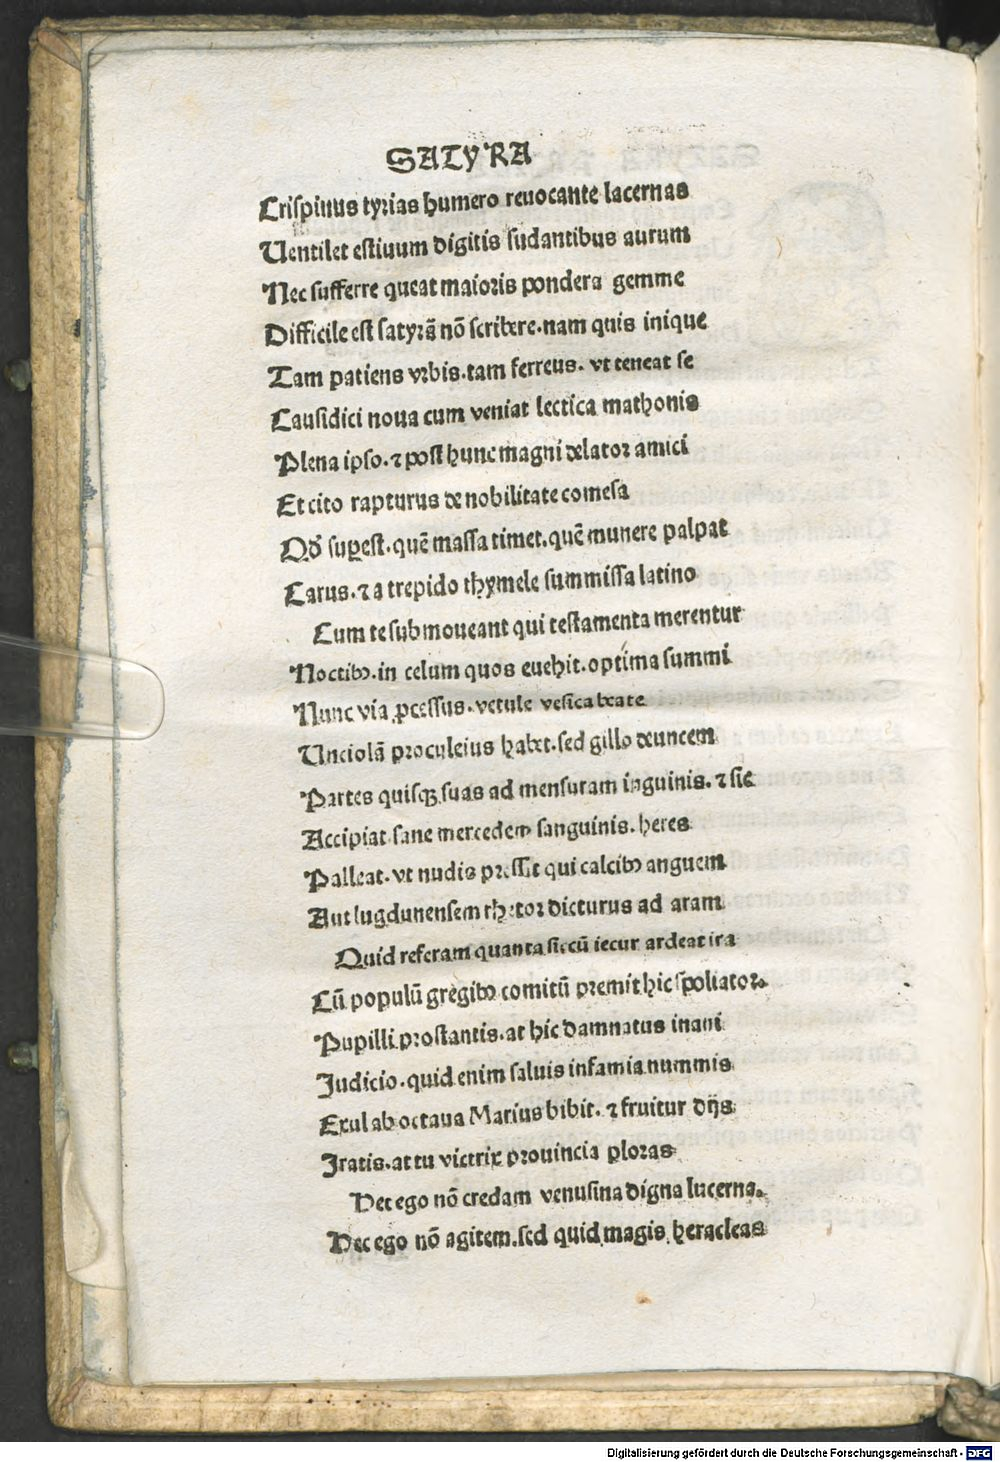 SATYRA
Crispinus tyrias humero reuocante lacernas
Uentilet estiuum digitis sudantibus aurum
Nec sufferre queat maioris pondera gemme
Difficile est satyrā nō scribere.nam quis inique
Tam patiens vrbis.tam ferreus. vt teneat se
Causidici noua cum veniat lectica mathonis
Plena ipso.⁊ post hunc magni delator amici
Et cito rapturus de nobilitate comesa
Qđ suꝑest.quē massa timet.quē munere palpat
Carus.⁊ a trepido thymele summissa latino
Cum te submoueant qui testamenta merentur
Noctibꝰ.in celum quos euehit.optima summi
Nunc via ꝓcessus.vetule vesica beate
Unciolā proculeius habet.sed gillo deuncem
Partes quisqꝫ suas ad mensuram inguinis.⁊ sic
Accipiat sane mercedem sanguinis.heres
Palleat.vt nudis pressit qui calcibꝰ anguem
Aut lugdunensem rhetor dicturus ad aram
Quid referam quanta siccū iecur ardeat ira
Cū populū gregibꝰ comitū premit hic spoliator.
Pupilli prostantis.at hic damnatus inani
Judicio.quid enim saluis infamia nummis
Exul ab octaua Marius bibit.⁊ fruitur dijs
Iratis.at tu victrix prouincia ploras
Hec ego nō credam venusina digna lucerna.
Hec ego nō agitem.sed quid magis heracleas
Digitalisierung gefördert durch die Deutsche Forschungsgemeinschaft - DFG